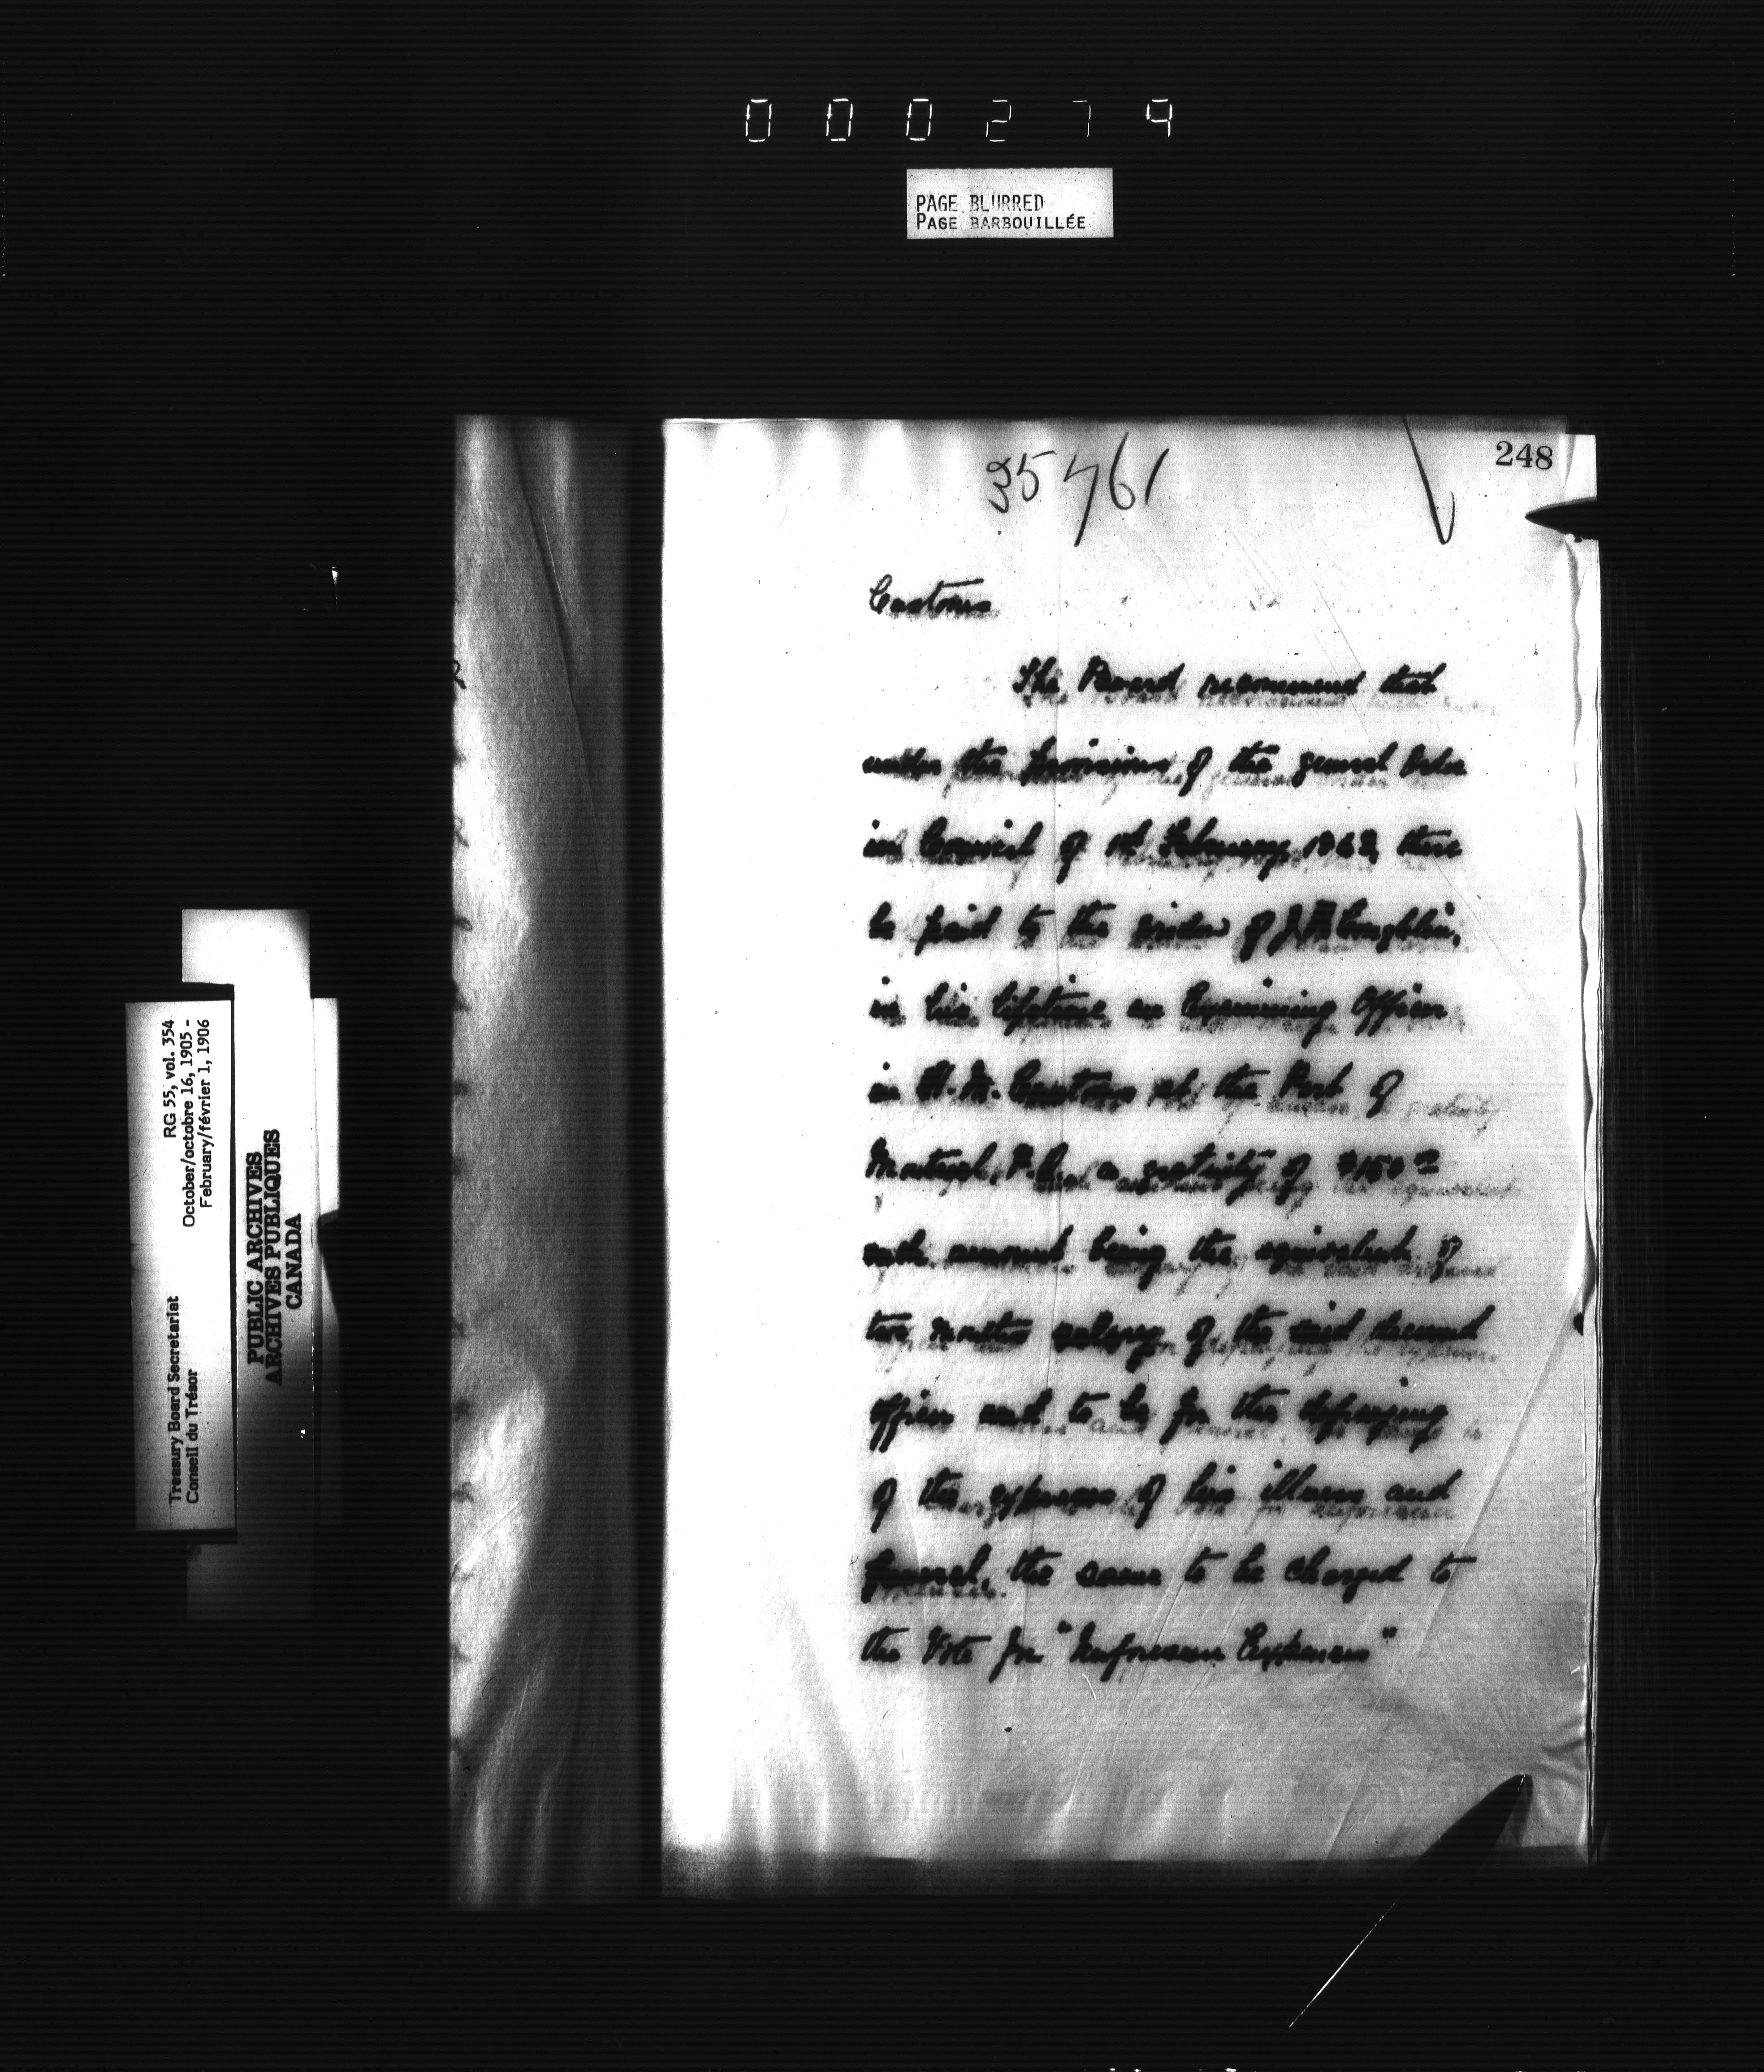 000279
PAGE BLURRED
PAGE BARBOUILLÉE
248
35461
Customs
The Board recommend that
under the provisions of the general Order
in Council of 1st February, 1862, there
be paid to the widow of J. Coughlin,
in his lifetime an Examining Officer
in H.M. Customs at the Port of
Montreal, P.Q. a gratuity of $150 00
such amount being the equivalent of
two months salary of the said deceased
officer and to be for the defraying
of the expenses of his illness and
funeral, the same to be charged to
the Vote for "Unforeseen Expenses"
Treasury Board Secretariat RG 55, vol. 354
Conseil du Trésor October/octobre 16, 1905 -
February/février 1, 1906
PUBLIC ARCHIVES
ARCHIVES PUBLIQUES
CANADA